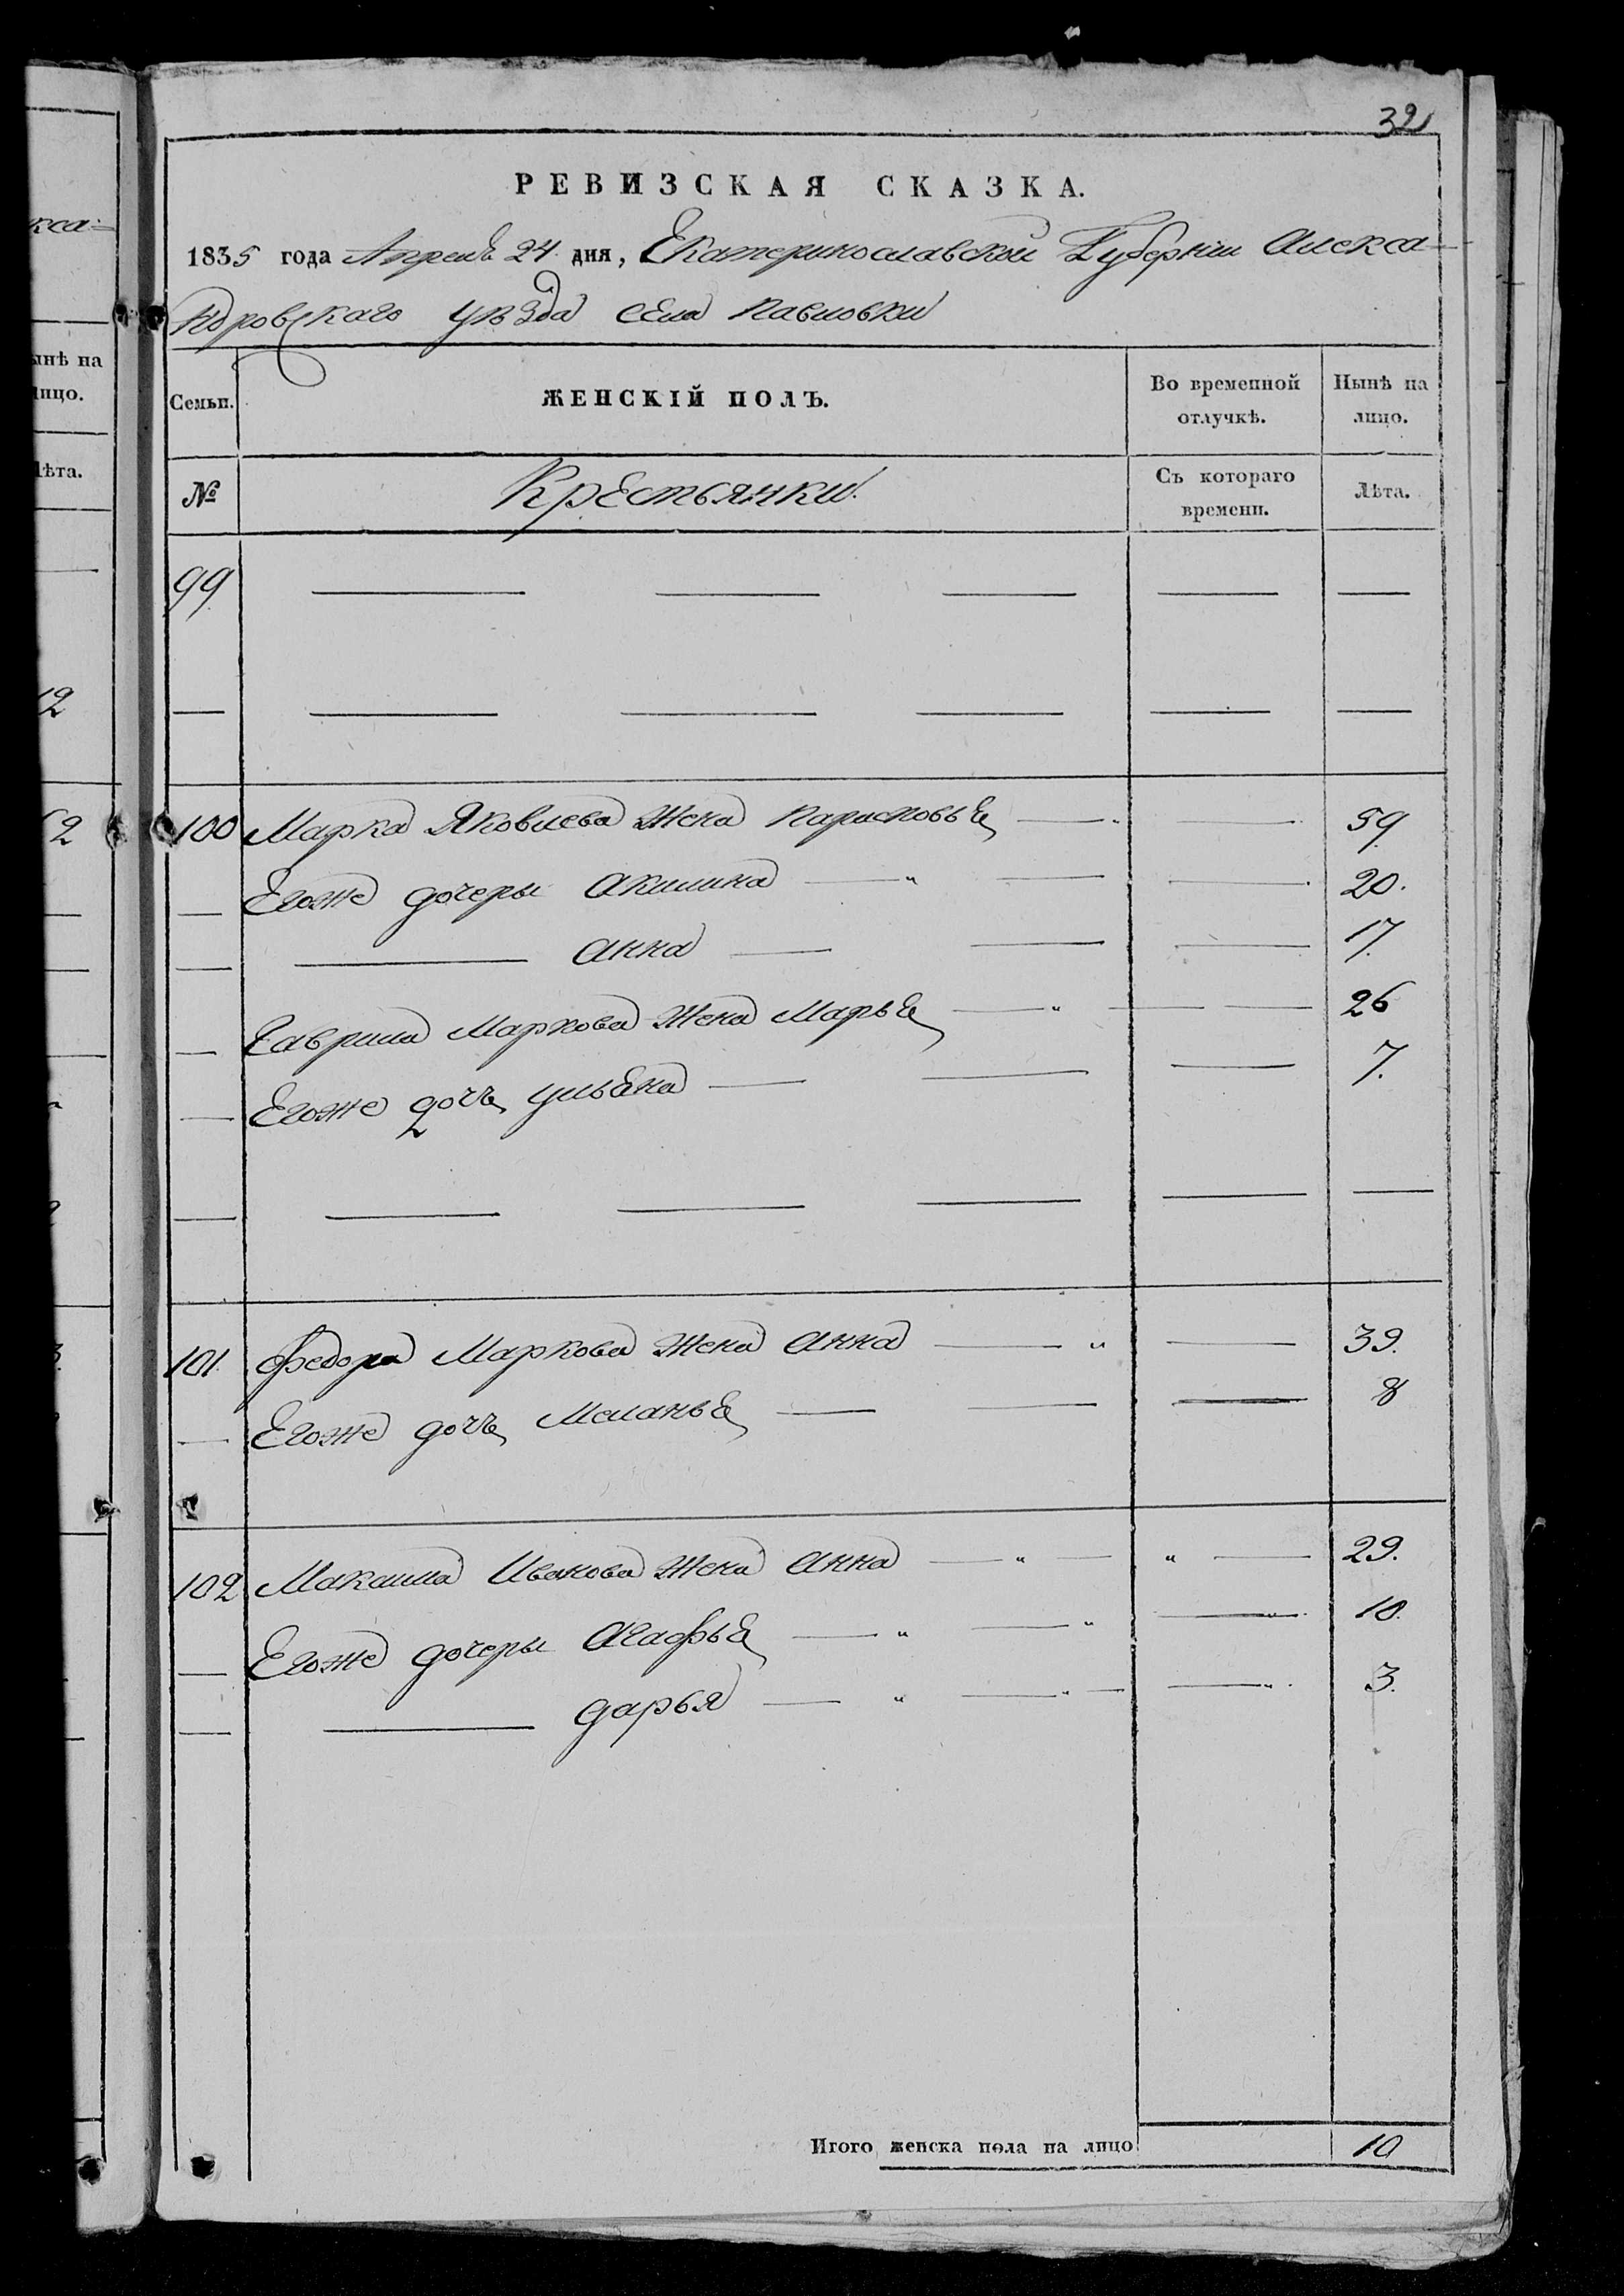 32
РЕВИЗСКАЯ СКАЗКА.
1835 года Апреля 24 дня, Екатеринославской Губернии Алекса-
ндровскаго уѣзда села Павловки
Семьи. ЖЕНСКІЙ ПОЛЪ. Во временной отлучкѣ. Нынѣ на лицо.
№ Крестьянки. Съ котораго времени. Лѣта.
99
100 Марка Яковлева жена Парасковья 59
Егоже дочеры Акилина 20.
Анна 17.
Гаврила Маркова жена Марья 26
Егоже дочь Ульяна 7.
101. Федора Маркова жена Анна 39.
Егоже дочь Меланья 8
102 Иванова жена Анна 29.
Егоже дочеры Агафья 10.
Дарья 3.
Итого женска пола на лицо 10
кса-
ынѣ на
лицо.
Лѣта.
12